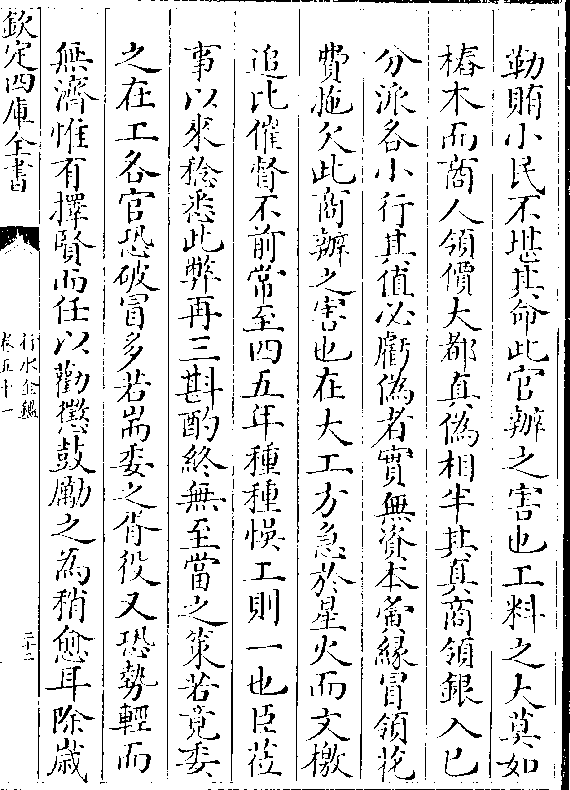 勒賄小民不堪其命此官辦之害也工料之大莫如
樁木而商人領價大都真偽相半其真商領銀入已
分派各小行其值必虧偽者實無資本夤緣冒領花
費拖欠此商辦之害也在大工方急於星火而文檄
追比催督不前常至四五年種種悞工則一也臣莅
事以來稔悉此弊再三斟酌終無至當之策若竟委
之在工各官恐破冒多若耑委之胥役又恐勢輕而
無濟惟有擇賢而任以勸懲鼓勵之為稍愈耳除歲
欽定四庫全書
行水金鑑
卷五十一
二十二